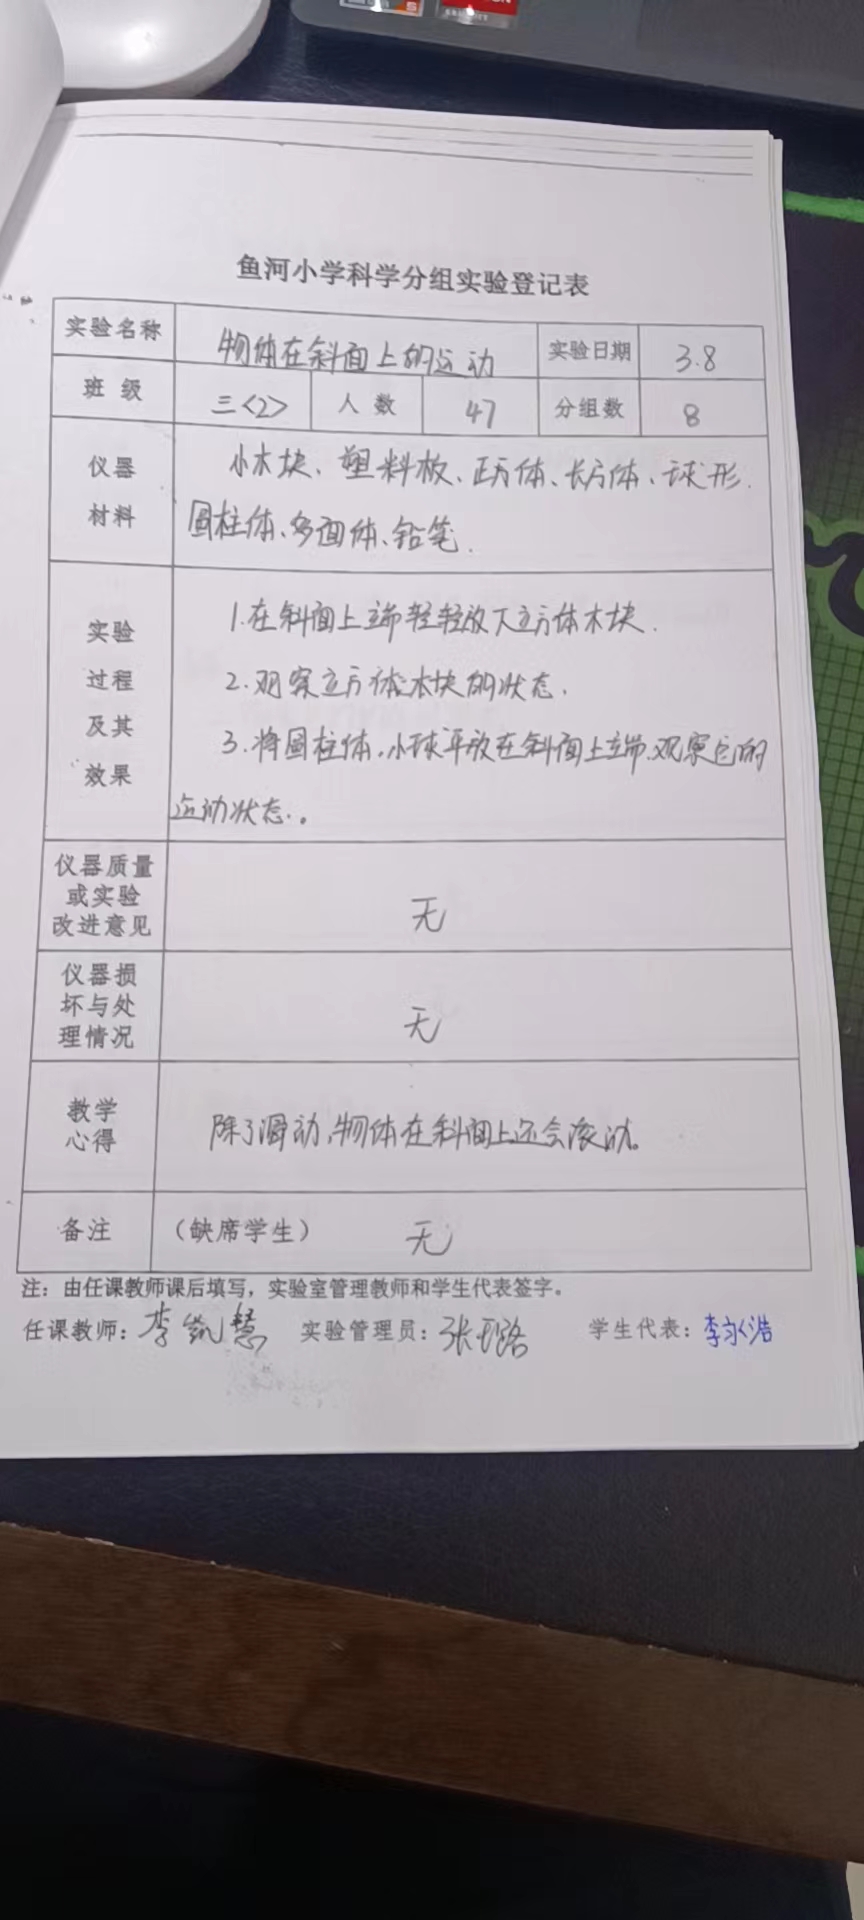 鱼河小学科学分组实验登记表
实验名称 物体在斜面上的运动 实验日期 3.8
班级 三<2> 人数 47 分组数 8
仪器 小木块、塑料板、正方体、长方体、球形.
材料 圆柱体、多面体、铅笔.
实验 1.在斜面上端轻轻放下立方体木块.
过程 2.观察立方体木块的状态.
及其 3.将圆柱体.小球平放在斜面上端.观察它的
效果 运动状态.。
仪器质量
或实验 无
改进意见
仪器损
坏与处 无
理情况
教学
心得 除了滑动,物体在斜面上还会滚动。
备注 （缺席学生） 无
注：由任课教师课后填写，实验室管理教师和学生代表签字。
任课教师：李凯慧 实验管理员：张 学生代表：李永浩